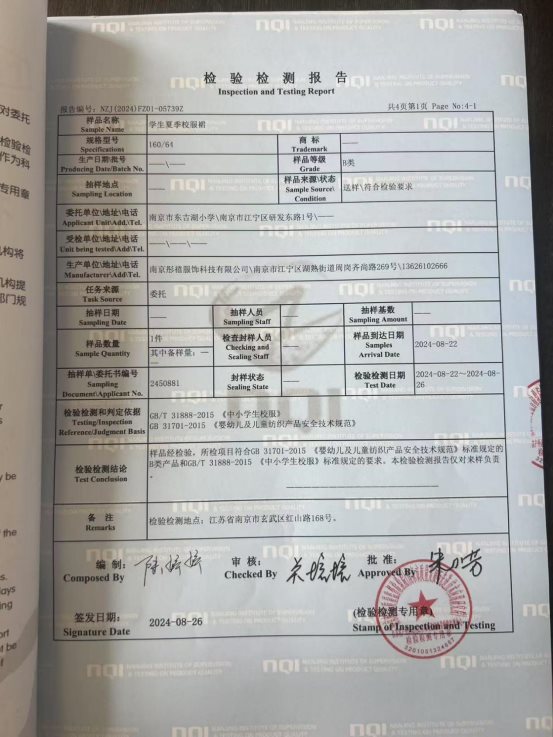 nqi NANJING INSTITUTE OF SUPERVISION & TESTING ON PRODUCT QUALITY
检验检测报告
Inspection and Testing Report
报告编号: NZJ(2024)FZ01-05739Z 共4页第1页 Page No:4-1
样品名称 学生夏季校服裙
Sample Name
规格型号 160/64 商 标 ——
Specifications Trademark
生产日期\批号 ——\—— 样品等级 B类
Producing Date/Batch No. Grade
抽样地点 —— 样品来源\状态 送样\符合检验要求
Sampling Location Sample Source\ Condition
委托单位\地址\电话 南京市东吉湖小学\南京市江宁区研发东路1号\——
Applicant Unit\Add\Tel.
受检单位\地址\电话 ——\——\——
Unit being tested\Add\Tel.
生产单位\地址\电话 南京彤禧服饰科技有限公司\南京市江宁区湖熟街道周岗齐尚路269号\13626102666
Manufacturer\Add\Tel.
任务来源 委托
Task Source
抽样日期 —— 抽样人员 —— 抽样基数 ——
Sampling Date Sampling Staff Sampling Amount
样品数量 1件 检查封样人员 —— 样品到达日期 2024-08-22
Sample Quantity 其中备样量: —— Checking and Sealing Staff Samples Arrival Date
抽样单\委托书编号 2450881 封样状态 —— 检验检测日期 2024-08-22~2024-08-26
Sampling Document\Applicant No. Sealing State Test Date
检验检测和判定依据 GB/T 31888-2015 《中小学生校服》
Testing/Inspection Reference/Judgment Basis GB 31701-2015 《婴幼儿及儿童纺织产品安全技术规范》
检验检测结论 样品经检验，所检项目符合GB 31701-2015 《婴幼儿及儿童纺织产品安全技术规范》标准规定的
Test Conclusion B类产品和GB/T 31888-2015 《中小学生校服》标准规定的要求。本检验检测报告仅对来样负责。
备 注 检验检测地点: 江苏省南京市玄武区红山路168号。
Remarks
编 制: 审 核: 批 准:
Composed By Checked By Approved By
签发日期: 2024-08-26 (检验检测专用章)
Signature Date Stamp of Inspection and Testing
检验检测专用章